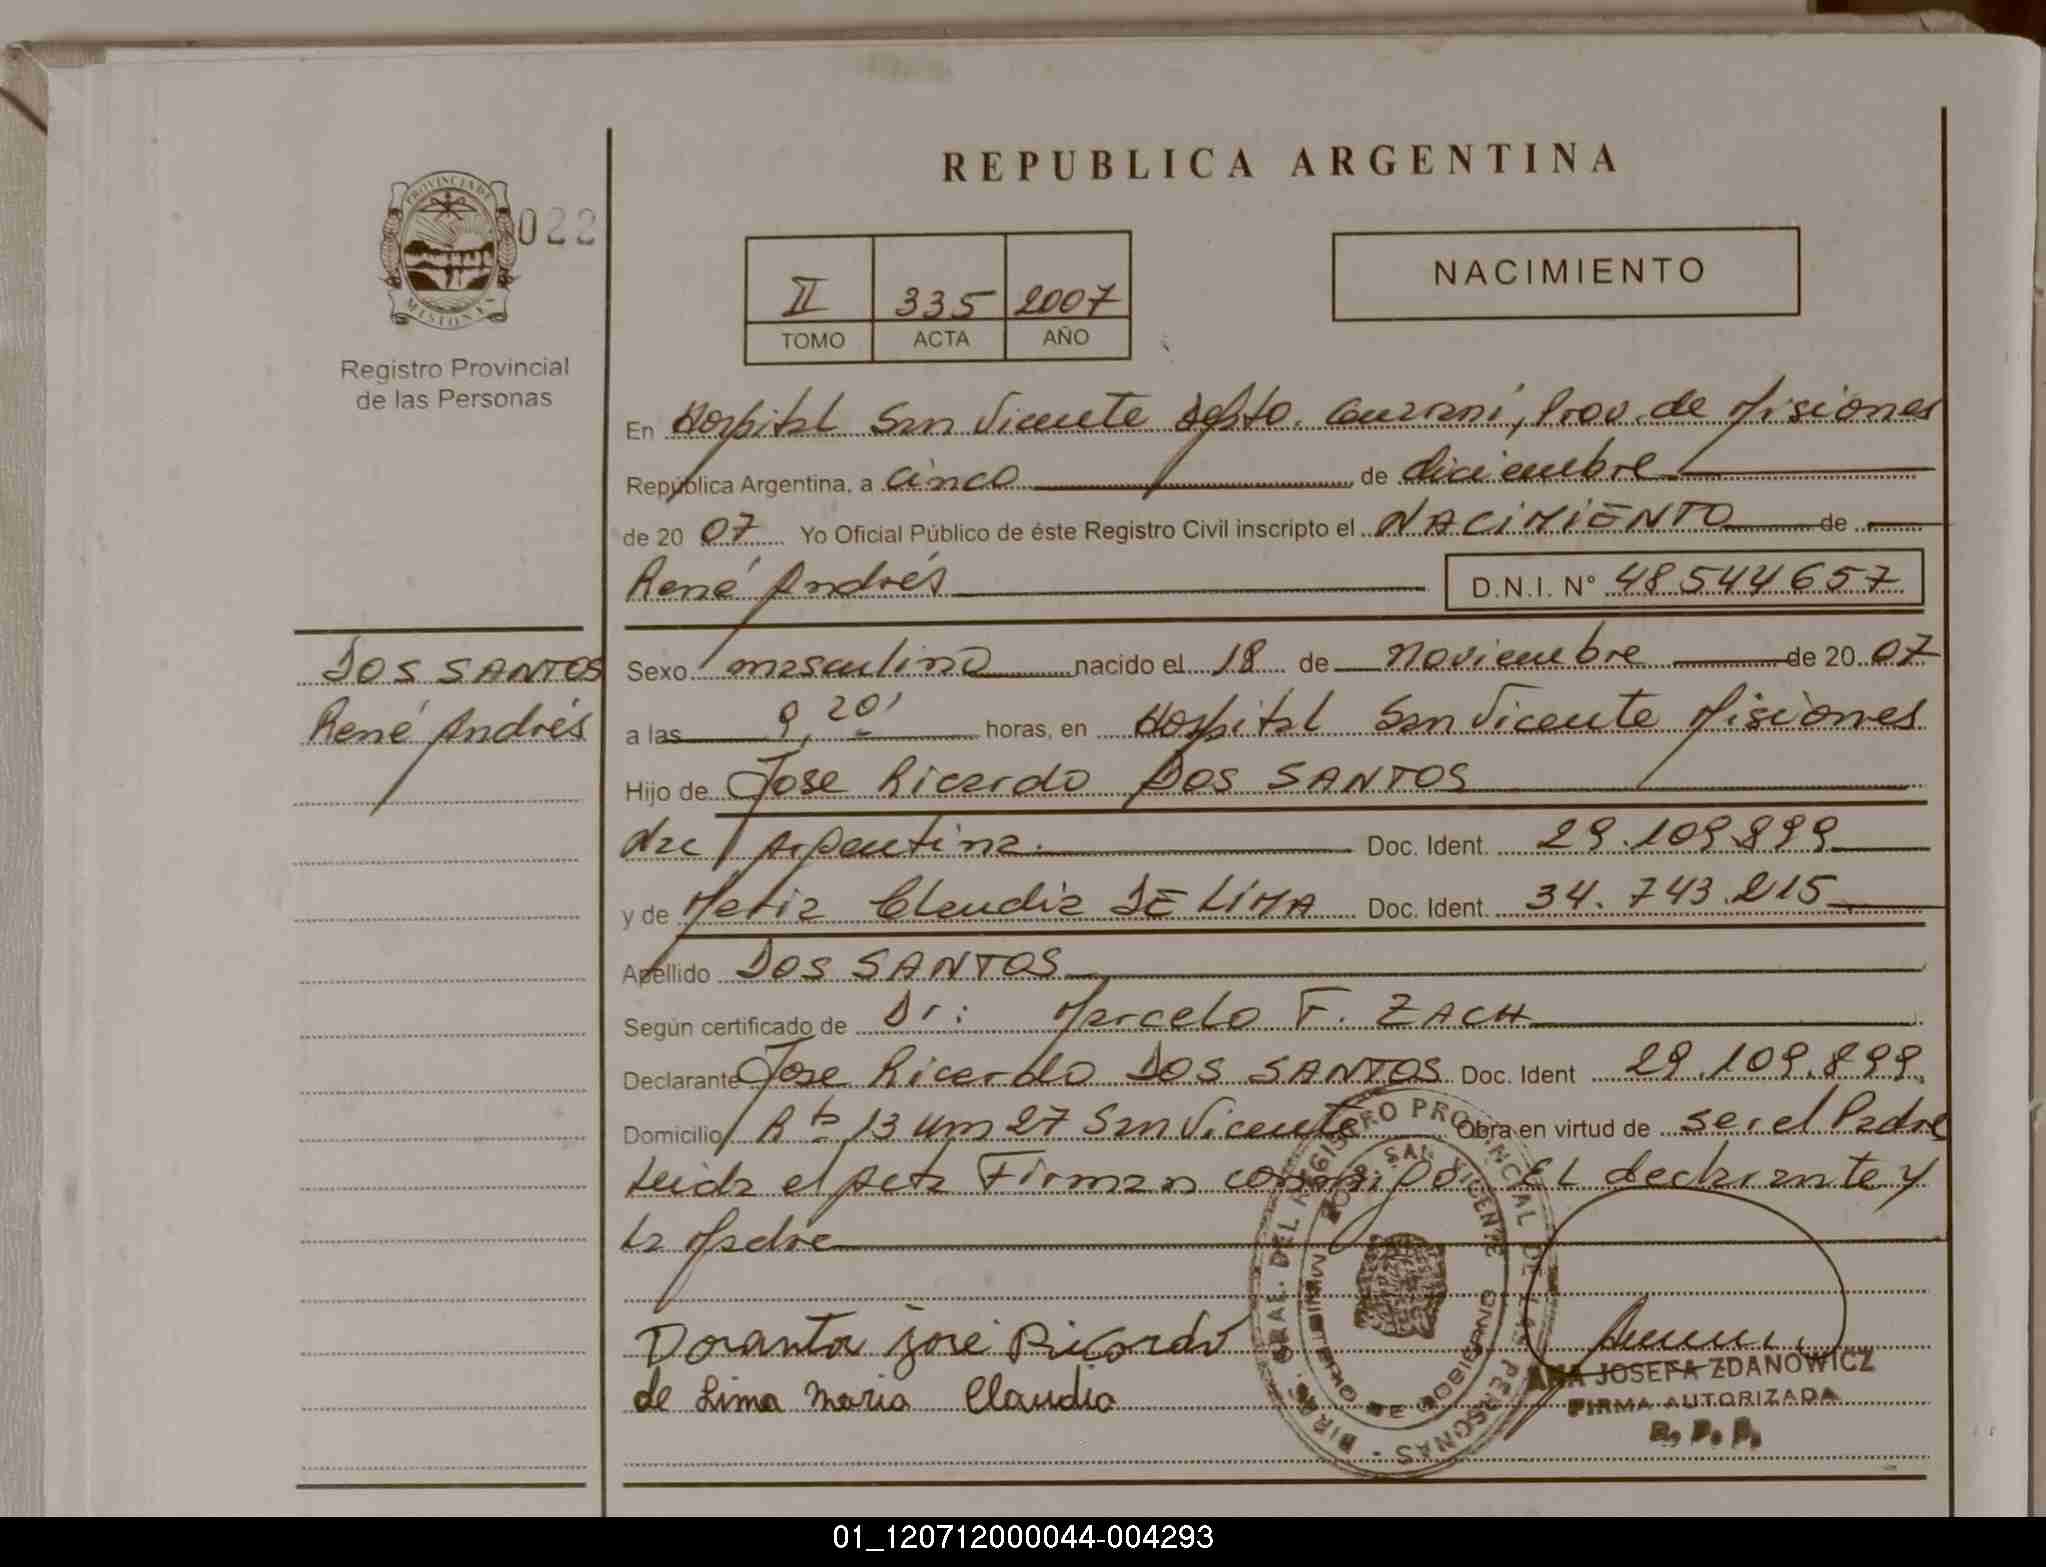 REPUBLICA ARGENTINA
PROVINCIA DE
MISIONES
022
Registro Provincial
de las Personas
II 335 2007
TOMO ACTA AÑO
NACIMIENTO
En Hospital San Vicente Depto. Guaraní, Prov. de Misiones
República Argentina, a cinco de diciembre
de 20 07 Yo Oficial Público de éste Registro Civil inscripto el NACIMIENTO de
René Andrés D.N.I. N° 48544657
DOS SANTOS
René Andrés
Sexo masculino nacido el 18 de noviembre de 20 07
a las 9,20' horas, en Hospital San Vicente Misiones
Hijo de Jose Ricardo DOS SANTOS
nac Argentina. Doc. Ident. 29.109.899
y de Maria Claudia DE LIMA Doc. Ident. 34.743.215
Apellido DOS SANTOS
Según certificado de Dr: Marcelo F. ZACH
Declarante Jose Ricardo DOS SANTOS Doc. Ident 29.109.899
Domicilio Rta 13 Km 27 San Vicente Obra en virtud de ser el Padre
Leida el Acta Firman conmigo EL declarante y
la Madre
Dosantos José Ricardo
de Lima Maria Claudia
DIR. GRAL. DEL REGISTRO PROVINCIAL DE LAS PERSONAS
MINISTERIO DE GOBIERNO
ANA JOSEFA ZDANOWICZ
FIRMA AUTORIZADA
R. P. P.
01_120712000044-004293